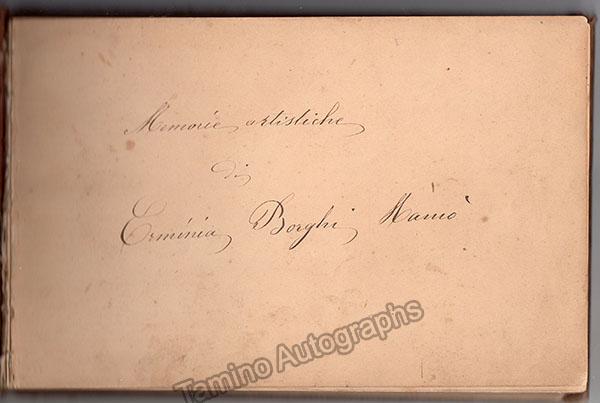 Memorie artistiche
di
Erminia Borghi Mamò
Tamino Autographs